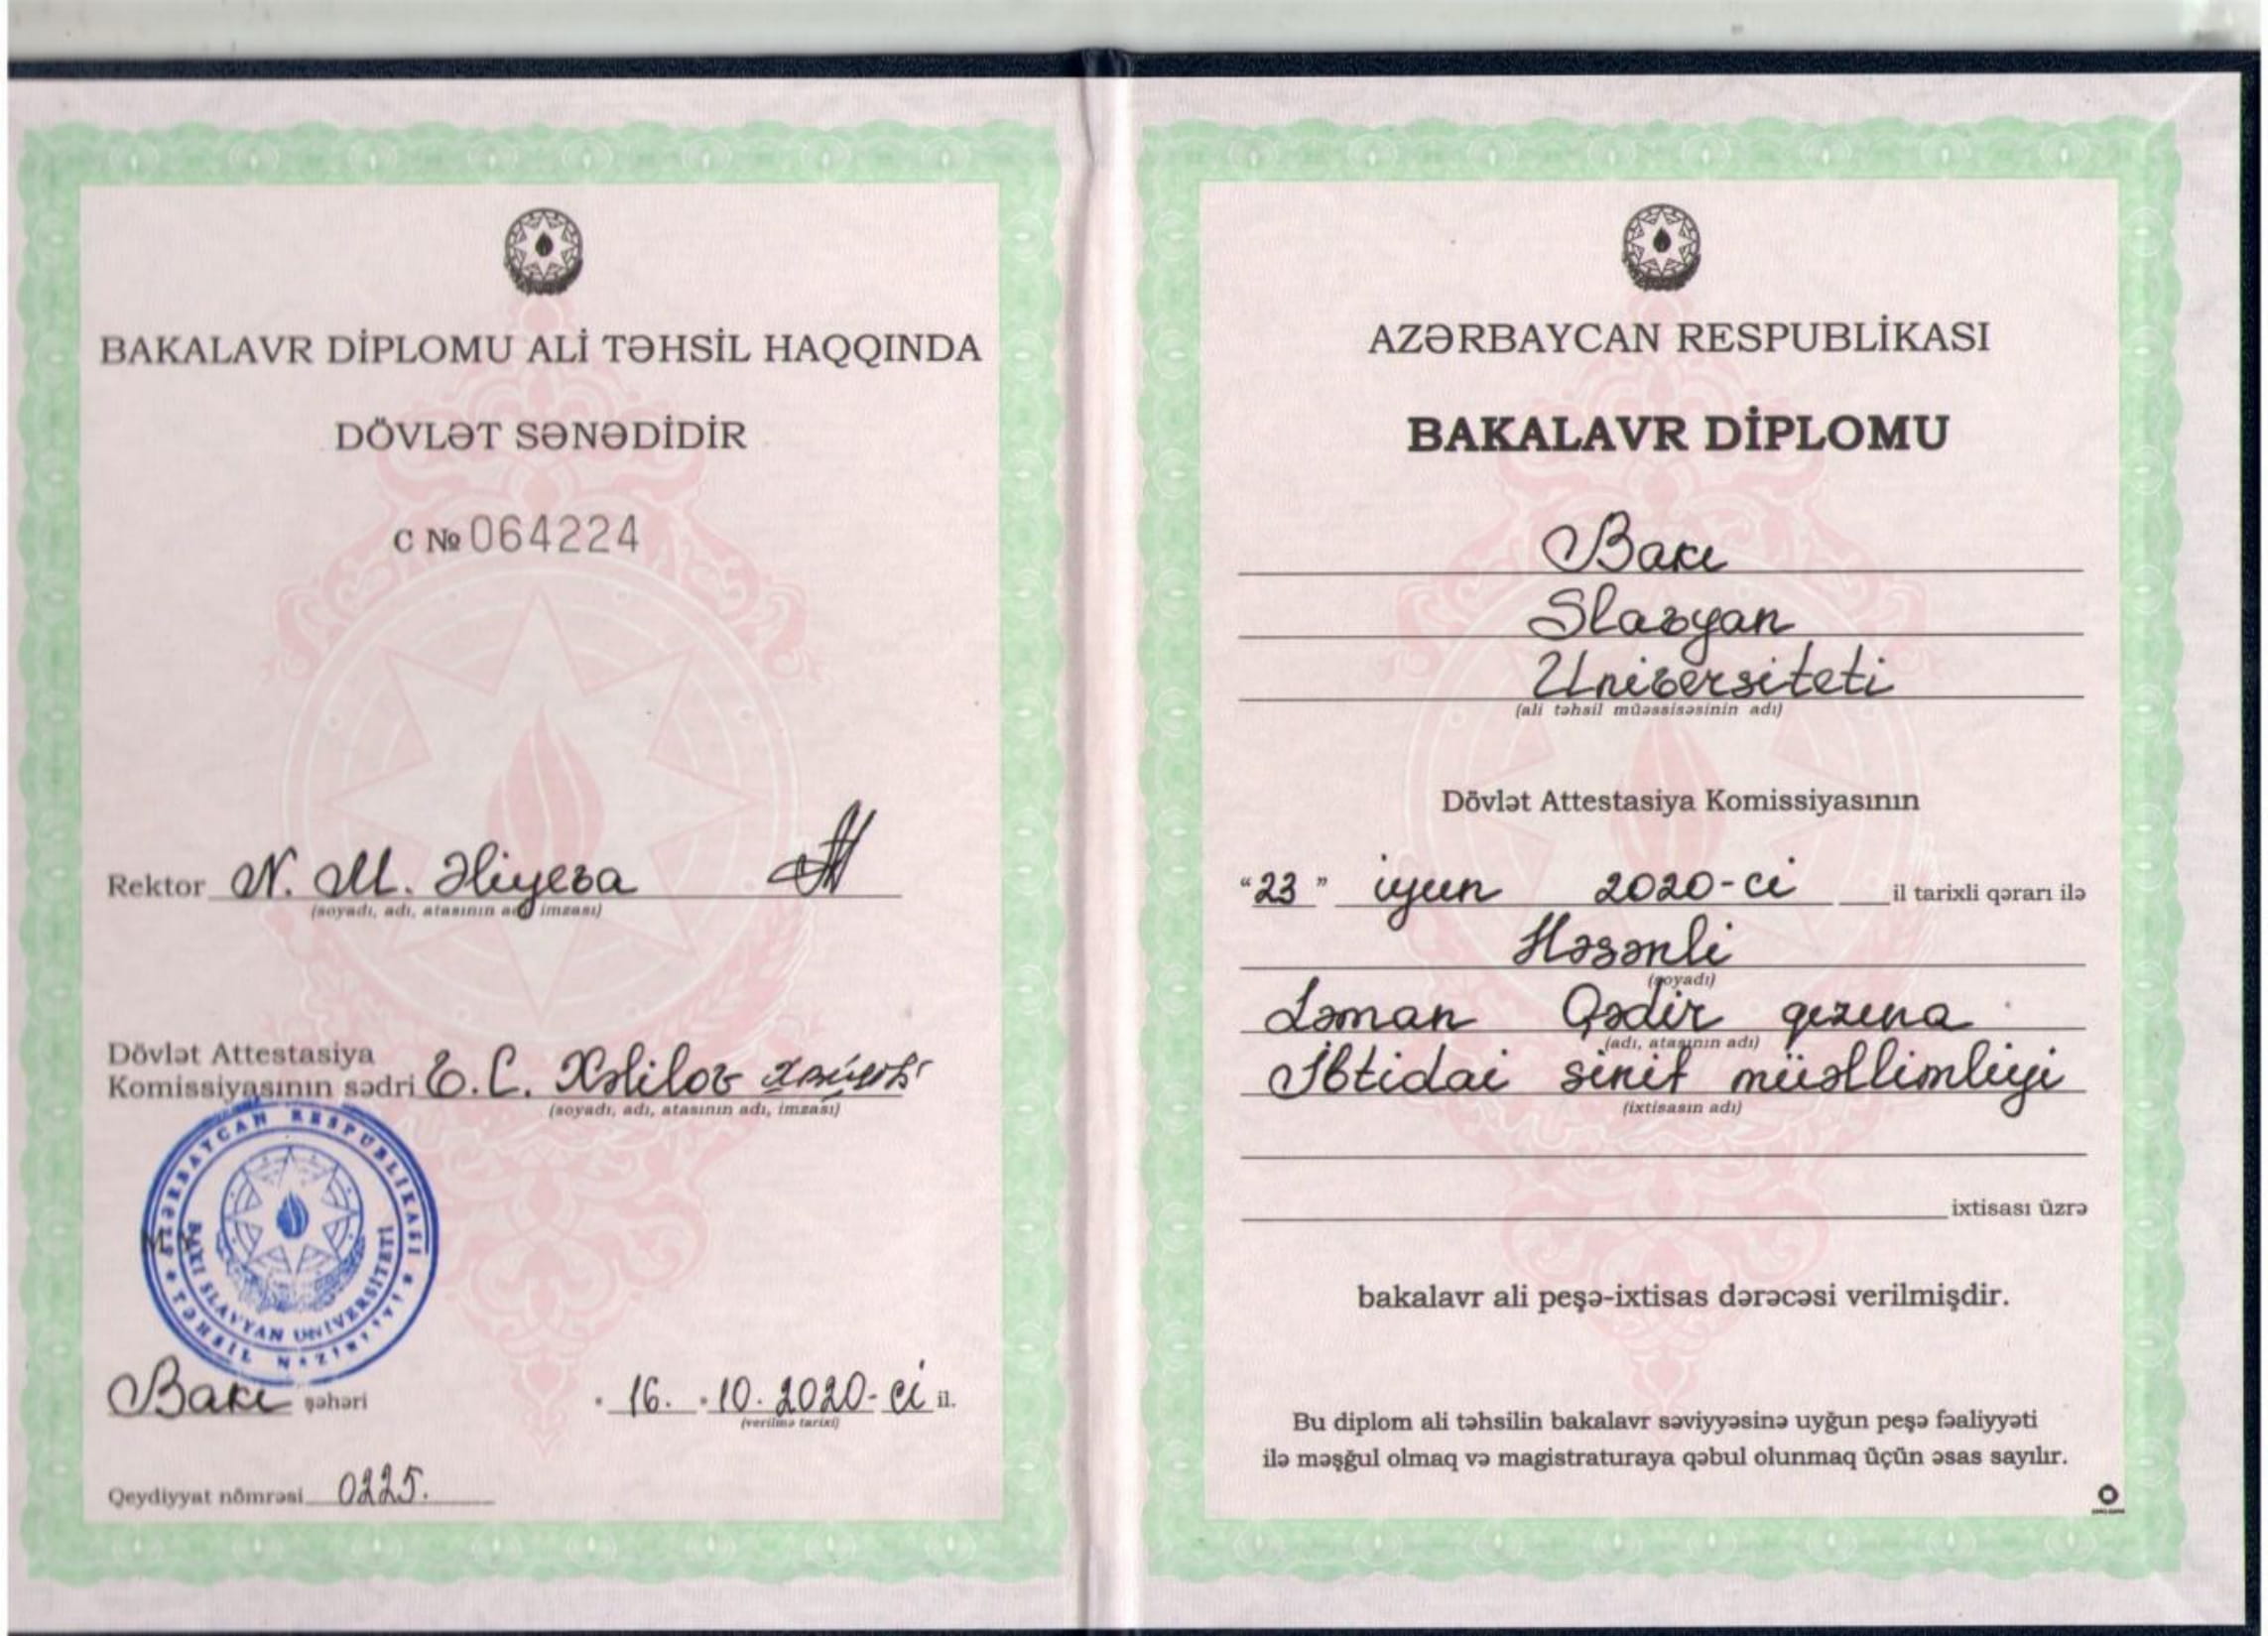 BAKALAVR DİPLOMU ALİ TƏHSİL HAQQINDA
DÖVLƏT SƏNƏDİDİR
C № 064224
Rektor N. M. Əliyeva
(soyadı, adı, atasının adı, imzası)
Dövlət Attestasiya
Komissiyasının sədri E.C. Xəlilov
(soyadı, adı, atasının adı, imzası)
AZƏRBAYCAN RESPUBLİKASI
TƏHSİL NAZİRLİYİ
BAKI SLAVYAN UNİVERSİTETİ
M.Y.
Bakı şəhəri
16. 10. 2020-ci il.
(verilmə tarixi)
Qeydiyyat nömrəsi 0225.
AZƏRBAYCAN RESPUBLİKASI
BAKALAVR DİPLOMU
Bakı
Slavyan
Universiteti
(ali təhsil müəssisəsinin adı)
Dövlət Attestasiya Komissiyasının
“23” iyun 2020-ci il tarixli qərarı ilə
Həsənli
(soyadı)
Ləman Qədir qızına
(adı, atasının adı)
İbtidai sinif müəllimliyi
(ixtisasın adı)
ixtisası üzrə
bakalavr ali peşə-ixtisas dərəcəsi verilmişdir.
Bu diplom ali təhsilin bakalavr səviyyəsinə uyğun peşə fəaliyyəti
ilə məşğul olmaq və magistraturaya qəbul olunmaq üçün əsas sayılır.